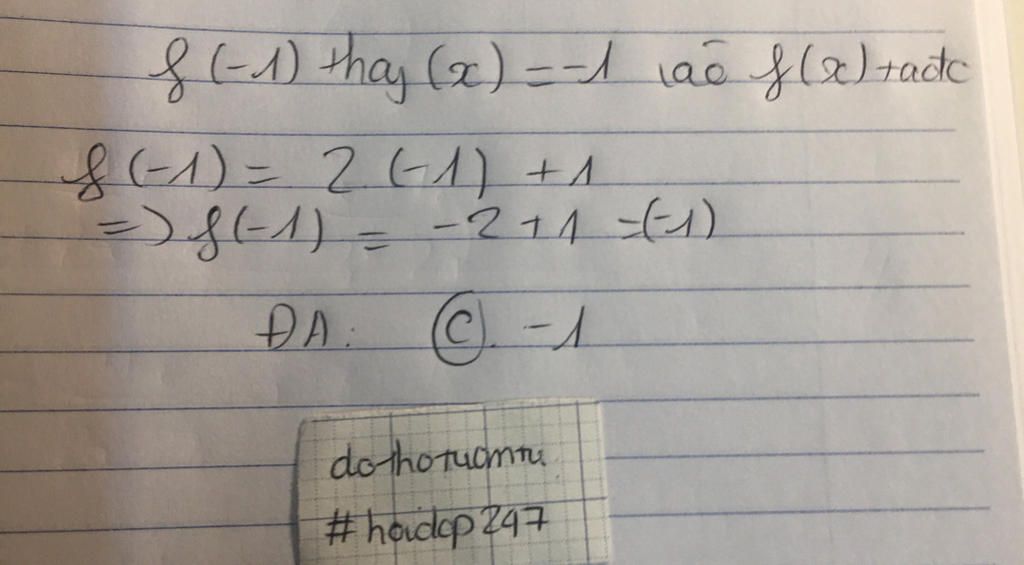 f(-1) thay (x) = -1 vào f(x) ta đc
f(-1) = 2.(-1) + 1
=> f(-1) = -2 + 1 = (-1)
ĐA: C. -1
#hoidap247